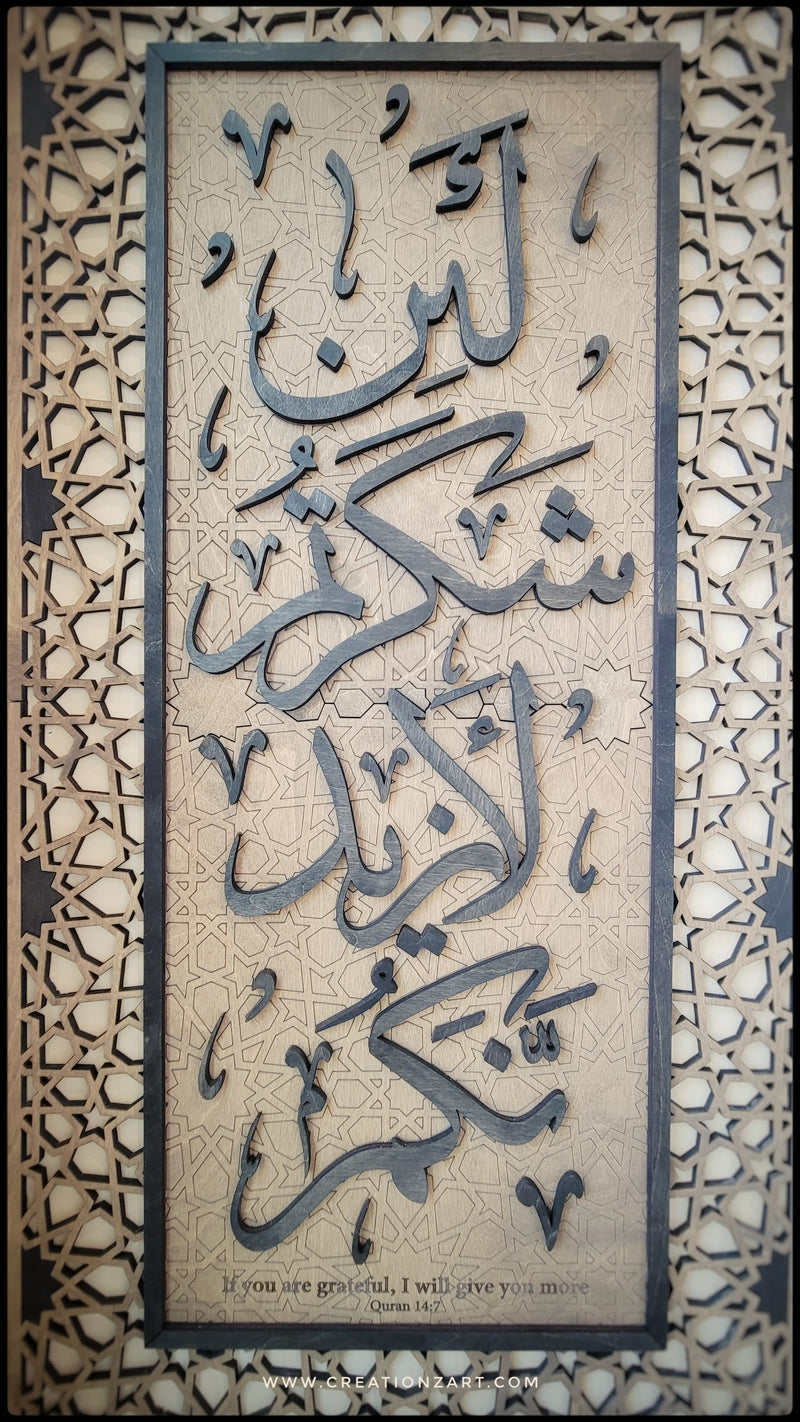 لَئِن
شَكَرْتُمْ
لَأَزِيد
نَّكُمْ
If you are grateful, I will give you more
Quran 14:7
WWW.CREATIONZART.COM